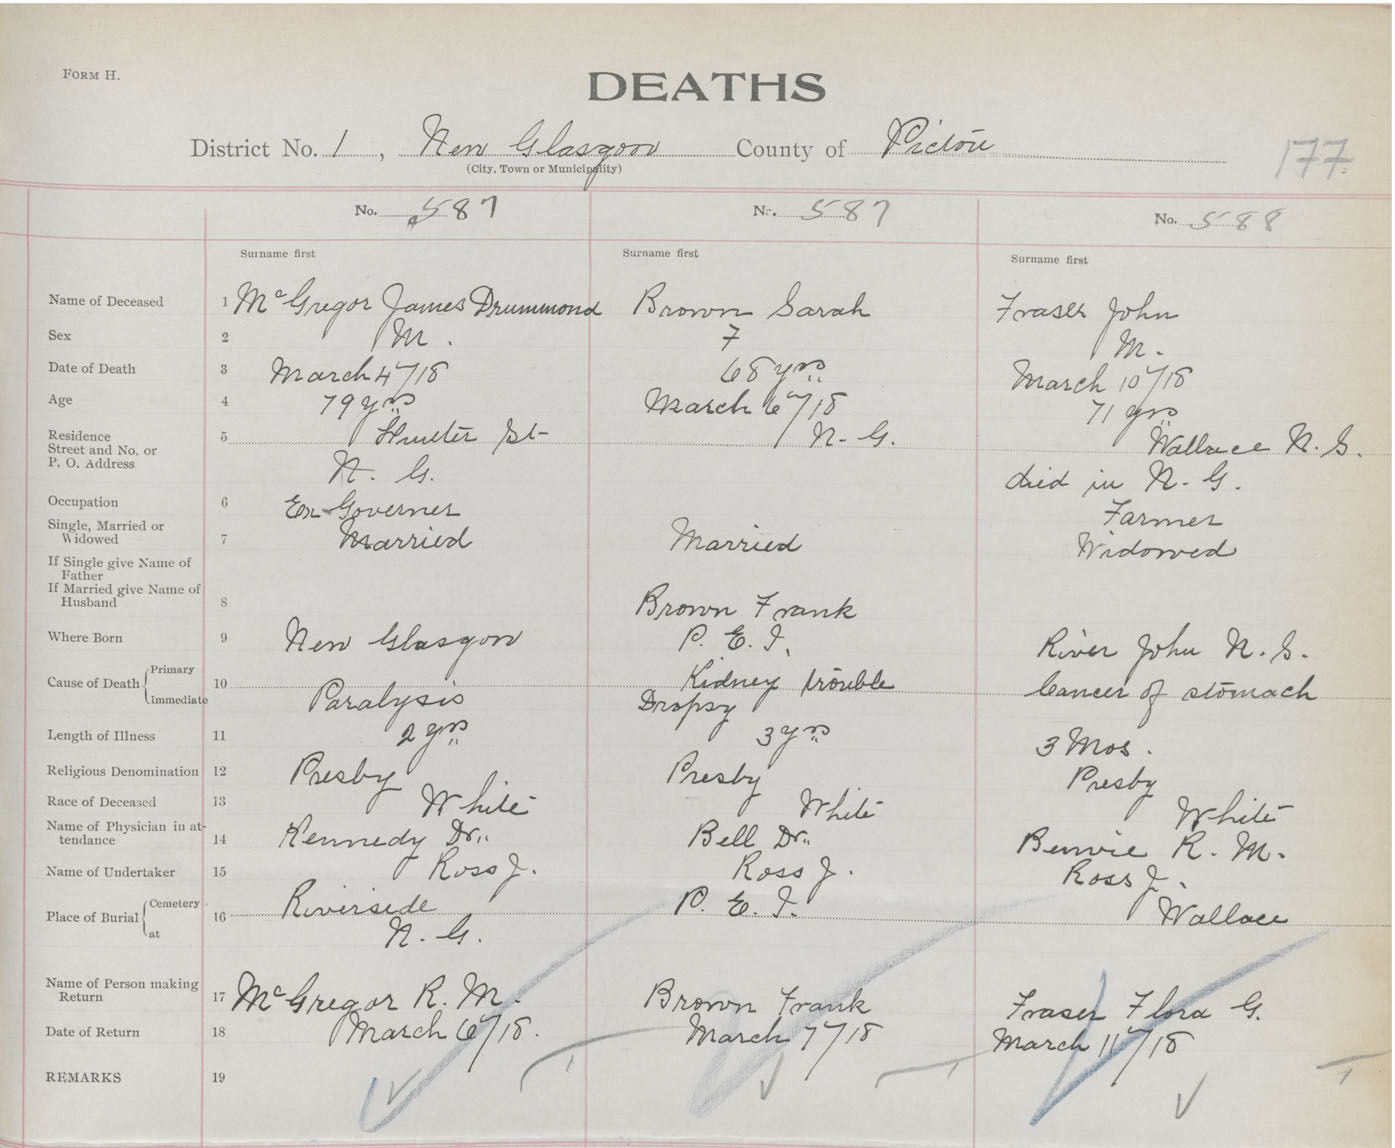 FORM H.
DEATHS
District No. 1, New Glasgow County of Pictou
(City, Town or Municipality)
177
No. 587 No. 587 No. 588
Surname first Surname first Surname first
Name of Deceased 1 McGregor James Drummond Brown Sarah Fraser John
Sex 2 M. F M.
Date of Death 3 March 4/18 68 yrs March 10/18
Age 4 79 yrs March 6/18 71 yrs
Residence 5 Hunter St N. G. Wallace N. S.
Street and No. or
P. O. Address N. G. died in N. G.
Occupation 6 Ex-Governer Farmer
Single, Married or
Widowed 7 Married Married Widowed
If Single give Name of
Father
If Married give Name of
Husband 8 Brown Frank
Where Born 9 New Glasgow P. E. I. River John N. S.
Cause of Death Primary 10 Kidney trouble Cancer of stomach
Immediate Paralysis Dropsy
Length of Illness 11 2 yrs 3 yrs 3 Mos.
Religious Denomination 12 Presby Presby Presby
Race of Deceased 13 White White White
Name of Physician in at-
tendance 14 Kennedy Dr. Bell Dr. Benvie R. M.
Name of Undertaker 15 Ross J. Ross J. Ross J.
Place of Burial Cemetery 16 Riverside P. E. I. Wallace
at N. G.
Name of Person making
Return 17 McGregor R. M. Brown Frank Fraser Flora G.
Date of Return 18 March 6/18. March 7/18 March 11/18
REMARKS 19